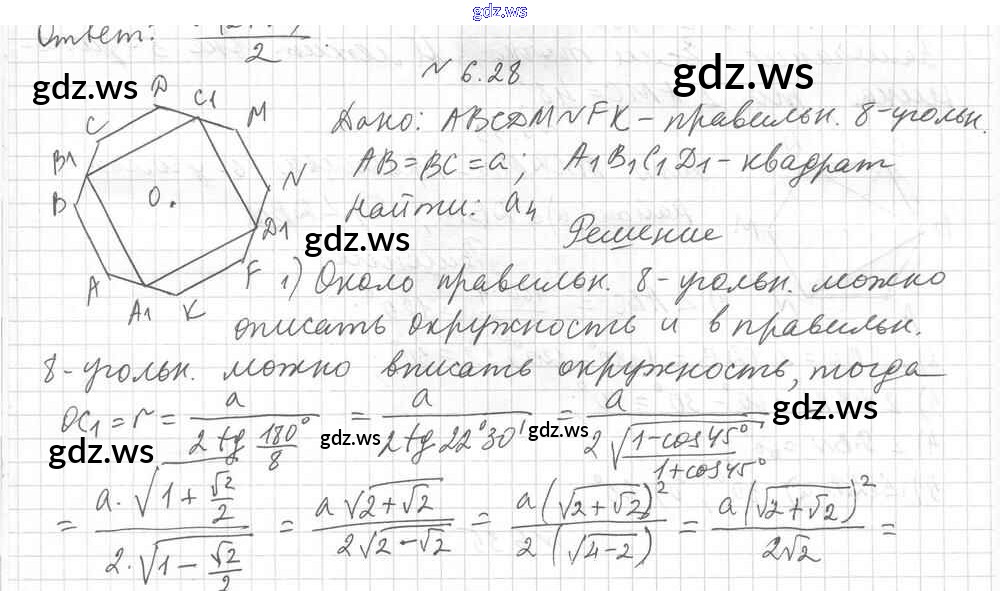 gdz.ws
Ответ: 2
№ 6.28
gdz.ws gdz.ws
D C1 M
C
B1 N
B O.
D1
A F
A1 K
Дано: ABCDMNFK – правильн. 8-угольн.
AB=BC=a; A1B1C1D1 – квадрат
Найти: a4
gdz.ws
Решение
1) Около правильн. 8-угольн. можно
описать окружность и в правильн.
8-угольн. можно вписать окружность, тогда
OC1 = r = a / (2 tg 180°/8) = a / (2 tg 22°30') = a / (2√((1-cos45°)/(1+cos45°)))
gdz.ws gdz.ws gdz.ws gdz.ws
= a·√(1+√2/2) / (2·√(1-√2/2)) = a√(2+√2) / (2√(2-√2)) = a(√(2+√2))² / (2(√(4-2))) = a(√(2+√2))² / (2√2) =